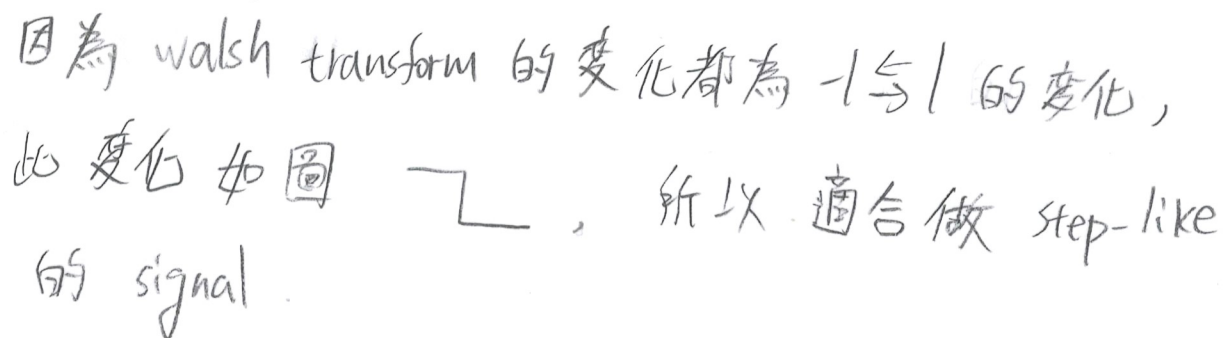 因為 walsh transform 的變化都為 -1⇆1 的变化,
此變化如圖 , 所以適合做 step-like
的 signal.